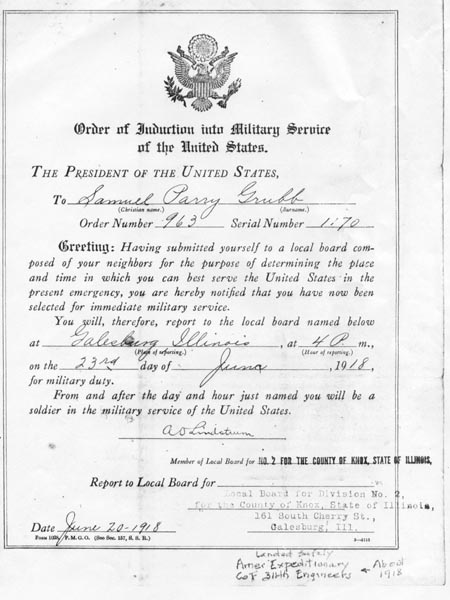 Order of Induction into Military Service
of the United States.
THE PRESIDENT OF THE UNITED STATES,
To Samuel Parry Grubb
(Christian name.) (Surname.)
Order Number 963 Serial Number 1170
Greeting: Having submitted yourself to a local board com-
posed of your neighbors for the purpose of determining the place
and time in which you can best serve the United States in the
present emergency, you are hereby notified that you have now been
selected for immediate military service.
You will, therefore, report to the local board named below
at Galesburg Illinois, at 4 P. m.,
(Place of reporting.) (Hour of reporting.)
on the 23rd day of June, 1918,
for military duty.
From and after the day and hour just named you will be a
soldier in the military service of the United States.
A O Lindstrum
Member of Local Board for NO. 2 FOR THE COUNTY OF KNOX, STATE OF ILLINOIS,
Report to Local Board for
Local Board for Division No. 2,
for the County of Knox, State of Illinois,
161 South Cherry St.,
Galesburg, Ill.
Date June 20-1918
Form 1028, P. M. G. O. (See Sec. 157, S. S. R.)
Landed Safely
Amer Expeditionary
Co F 314th Engineers
About
1918